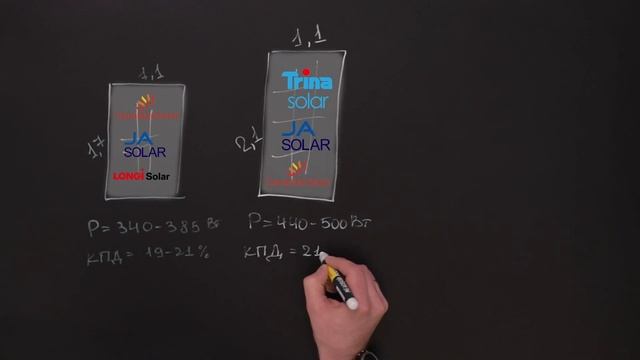 1,1
1,1
1,7
JA
SOLAR
LONGi Solar
2,1
Trina
solar
JA
SOLAR
P=340-385 Вт
P=440-500 Вт
КПД = 19-21%
КПД = 21